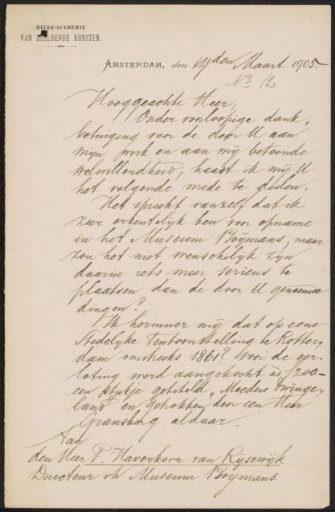 RIJKS-ACADEMIE
VAN BEELDENDE KUNSTEN.
AMSTERDAM, den Maart 1905
No 12
Hooggeachte Heer,
Onder voorloopige dank
betuiging voor de door U aan
mijn werk en aan mij betoonde
welwillendheid, haast ik mij U
het volgende mede te deelen.
Het spreekt vanzelf dat ik
zeer erkentelijk ben voor opname
in het Museum Boijmans, maar
zou het niet wenschelijk zijn
daarin iets meer serieus te
plaatsen dan de door U genoemde
dingen?
Ik herinner mij dat op eene
Stedelijke Tentoonstelling te Rotter
dam omstreeks 1861? Voor de ver
loting werd aangekocht à ƒ200-
een stukje getiteld, Moeders
en getrokken door een Heer
aldaar.
Aan
den Heer P. Haverkorn van Rijsewijk
Directeur v/h Museum Boijmans.